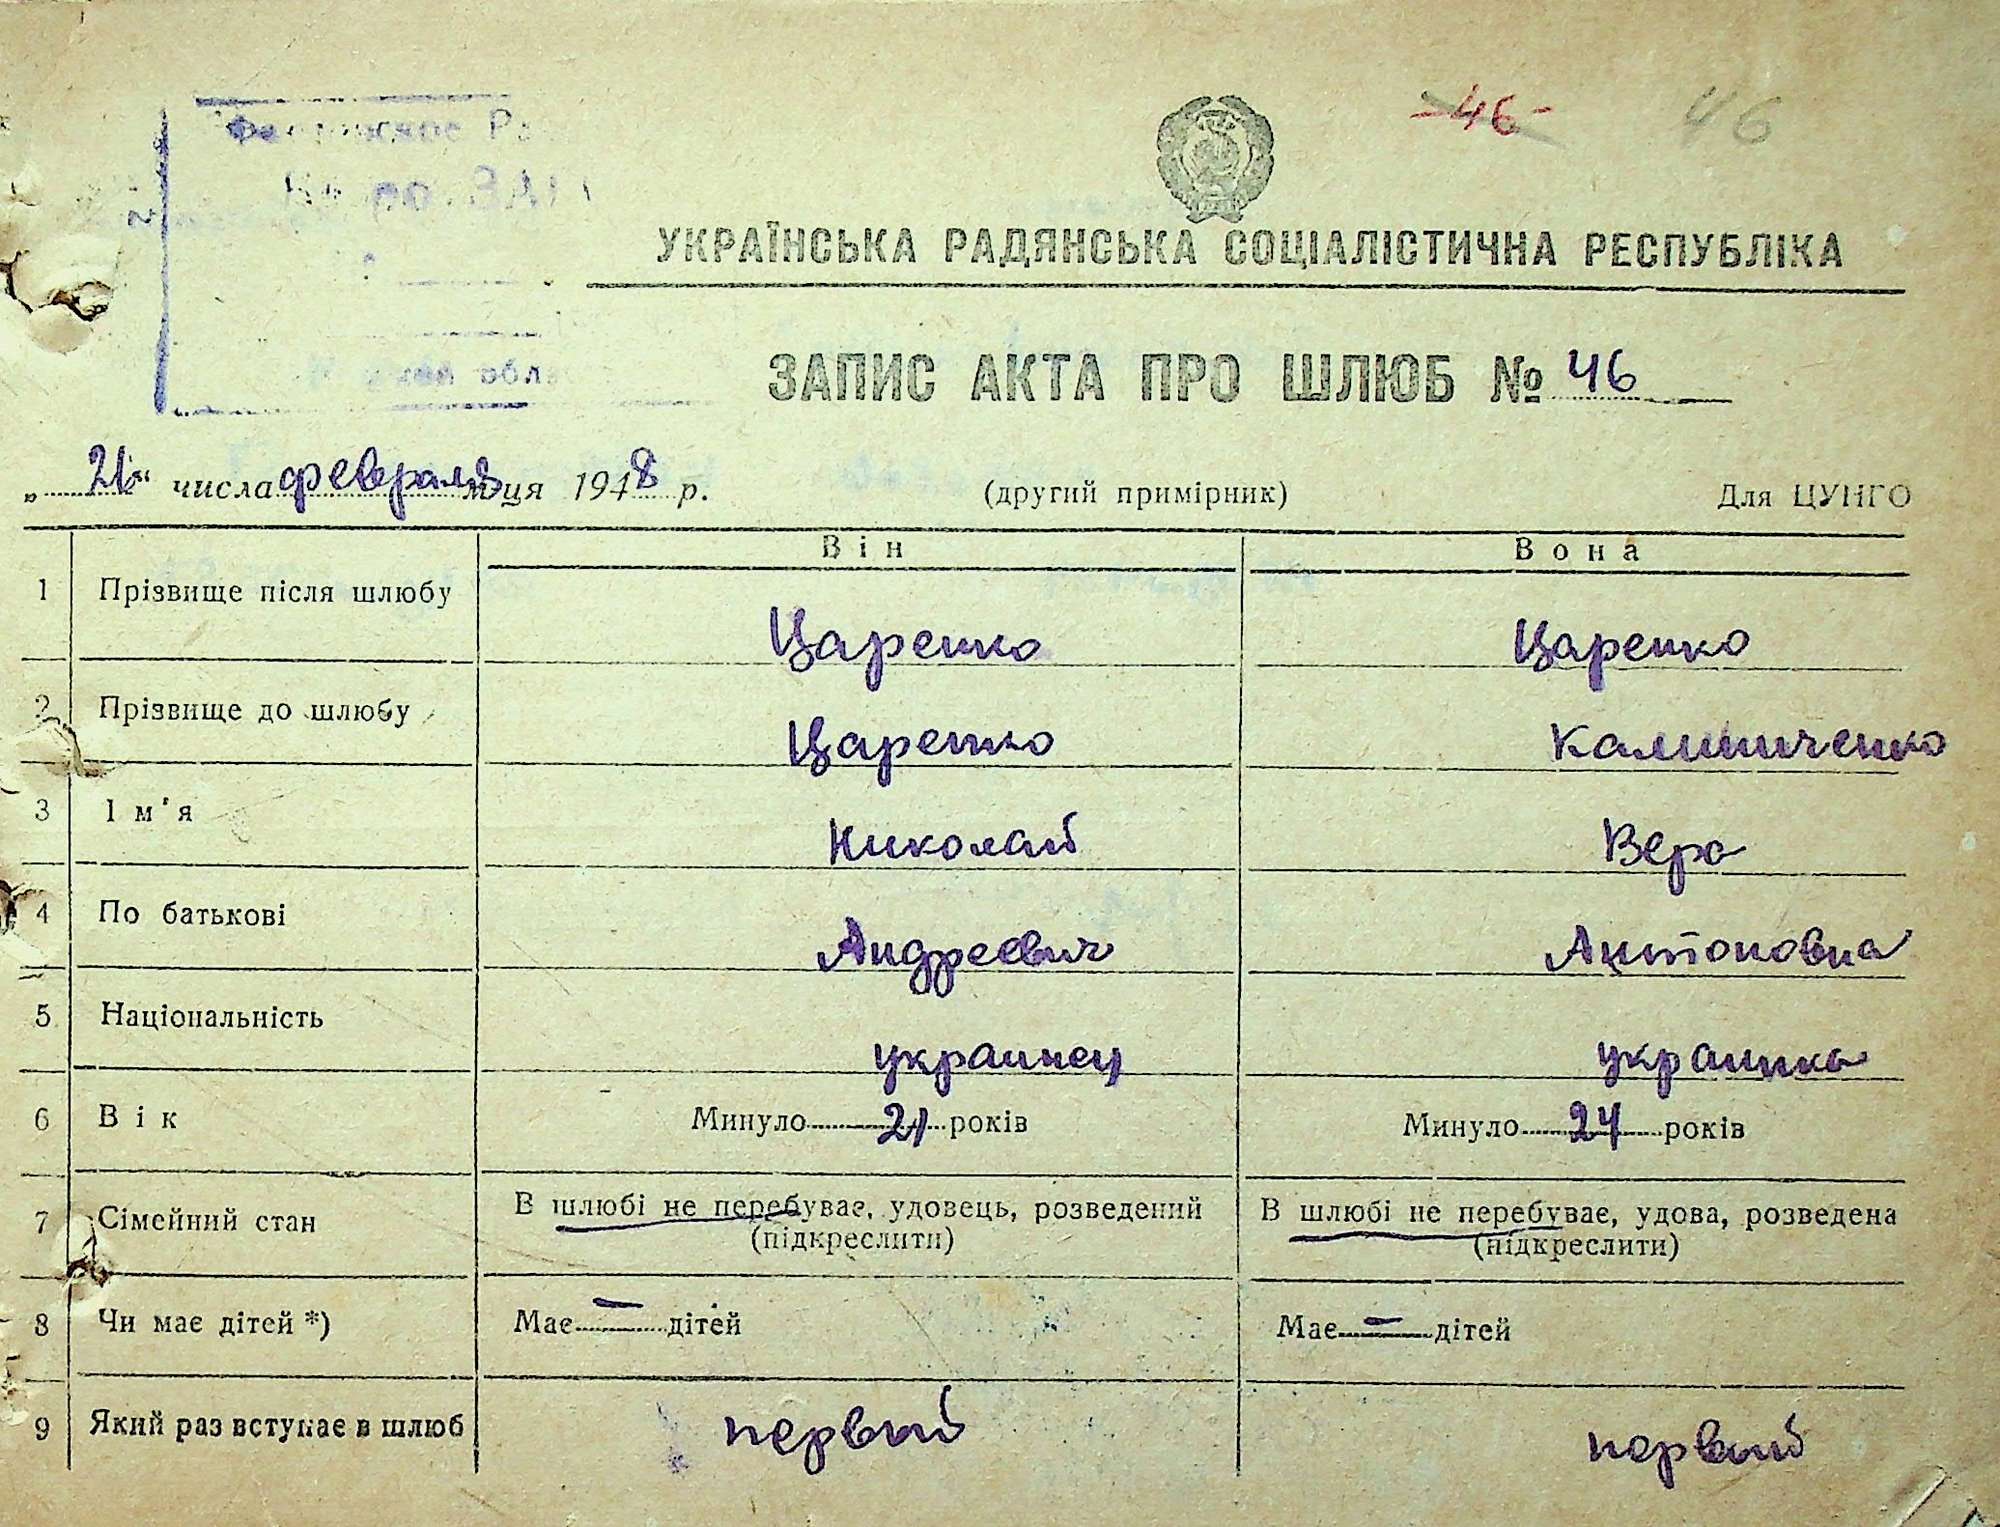 -46- 46
ЗАГС
УКРАЇНСЬКА РАДЯНСЬКА СОЦІАЛІСТИЧНА РЕСПУБЛІКА
ЗАПИС АКТА ПРО ШЛЮБ № 46
обл
„ 21 “ числа февраля м-ця 1948 р. (другий примірник) Для ЦУНГО
Він Вона
1 Прізвище після шлюбу Царенко Царенко
2 Прізвище до шлюбу Царенко Калиниченко
3 Ім'я Николай Вера
4 По батькові Андреевич Антоновна
5 Національність украинец украинка
6 Вік Минуло 21 років Минуло 24 років
7 Сімейний стан В шлюбі не перебуває, удовець, розведений В шлюбі не перебуває, удова, розведена
(підкреслити) (підкреслити)
8 Чи має дітей *) Має — дітей Має — дітей
9 Який раз вступає в шлюб первый первый